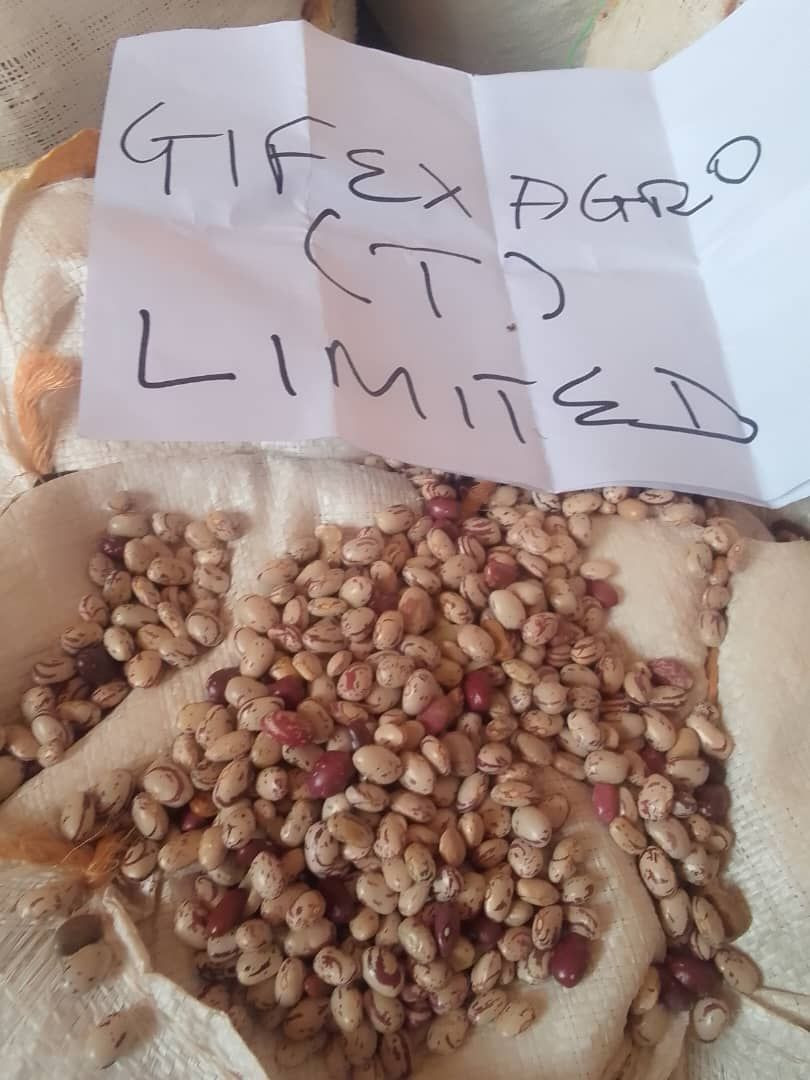 GIFEX AGRO
(T)
LIMITED